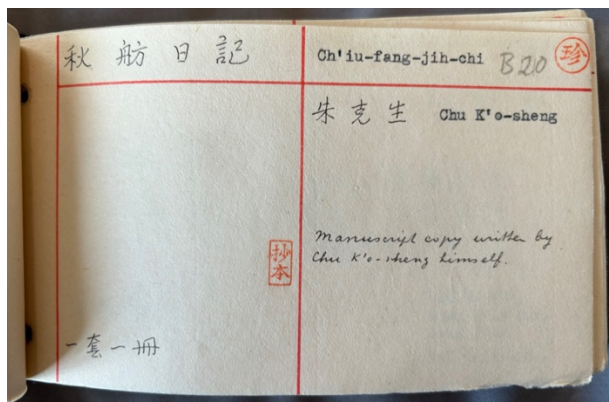 秋舫日記
Ch'iu-fang-jih-chi B20 珍
朱克生 Chu K'o-sheng
Manuscript copy written by
Chu K'o-sheng himself.
抄本
一套一冊